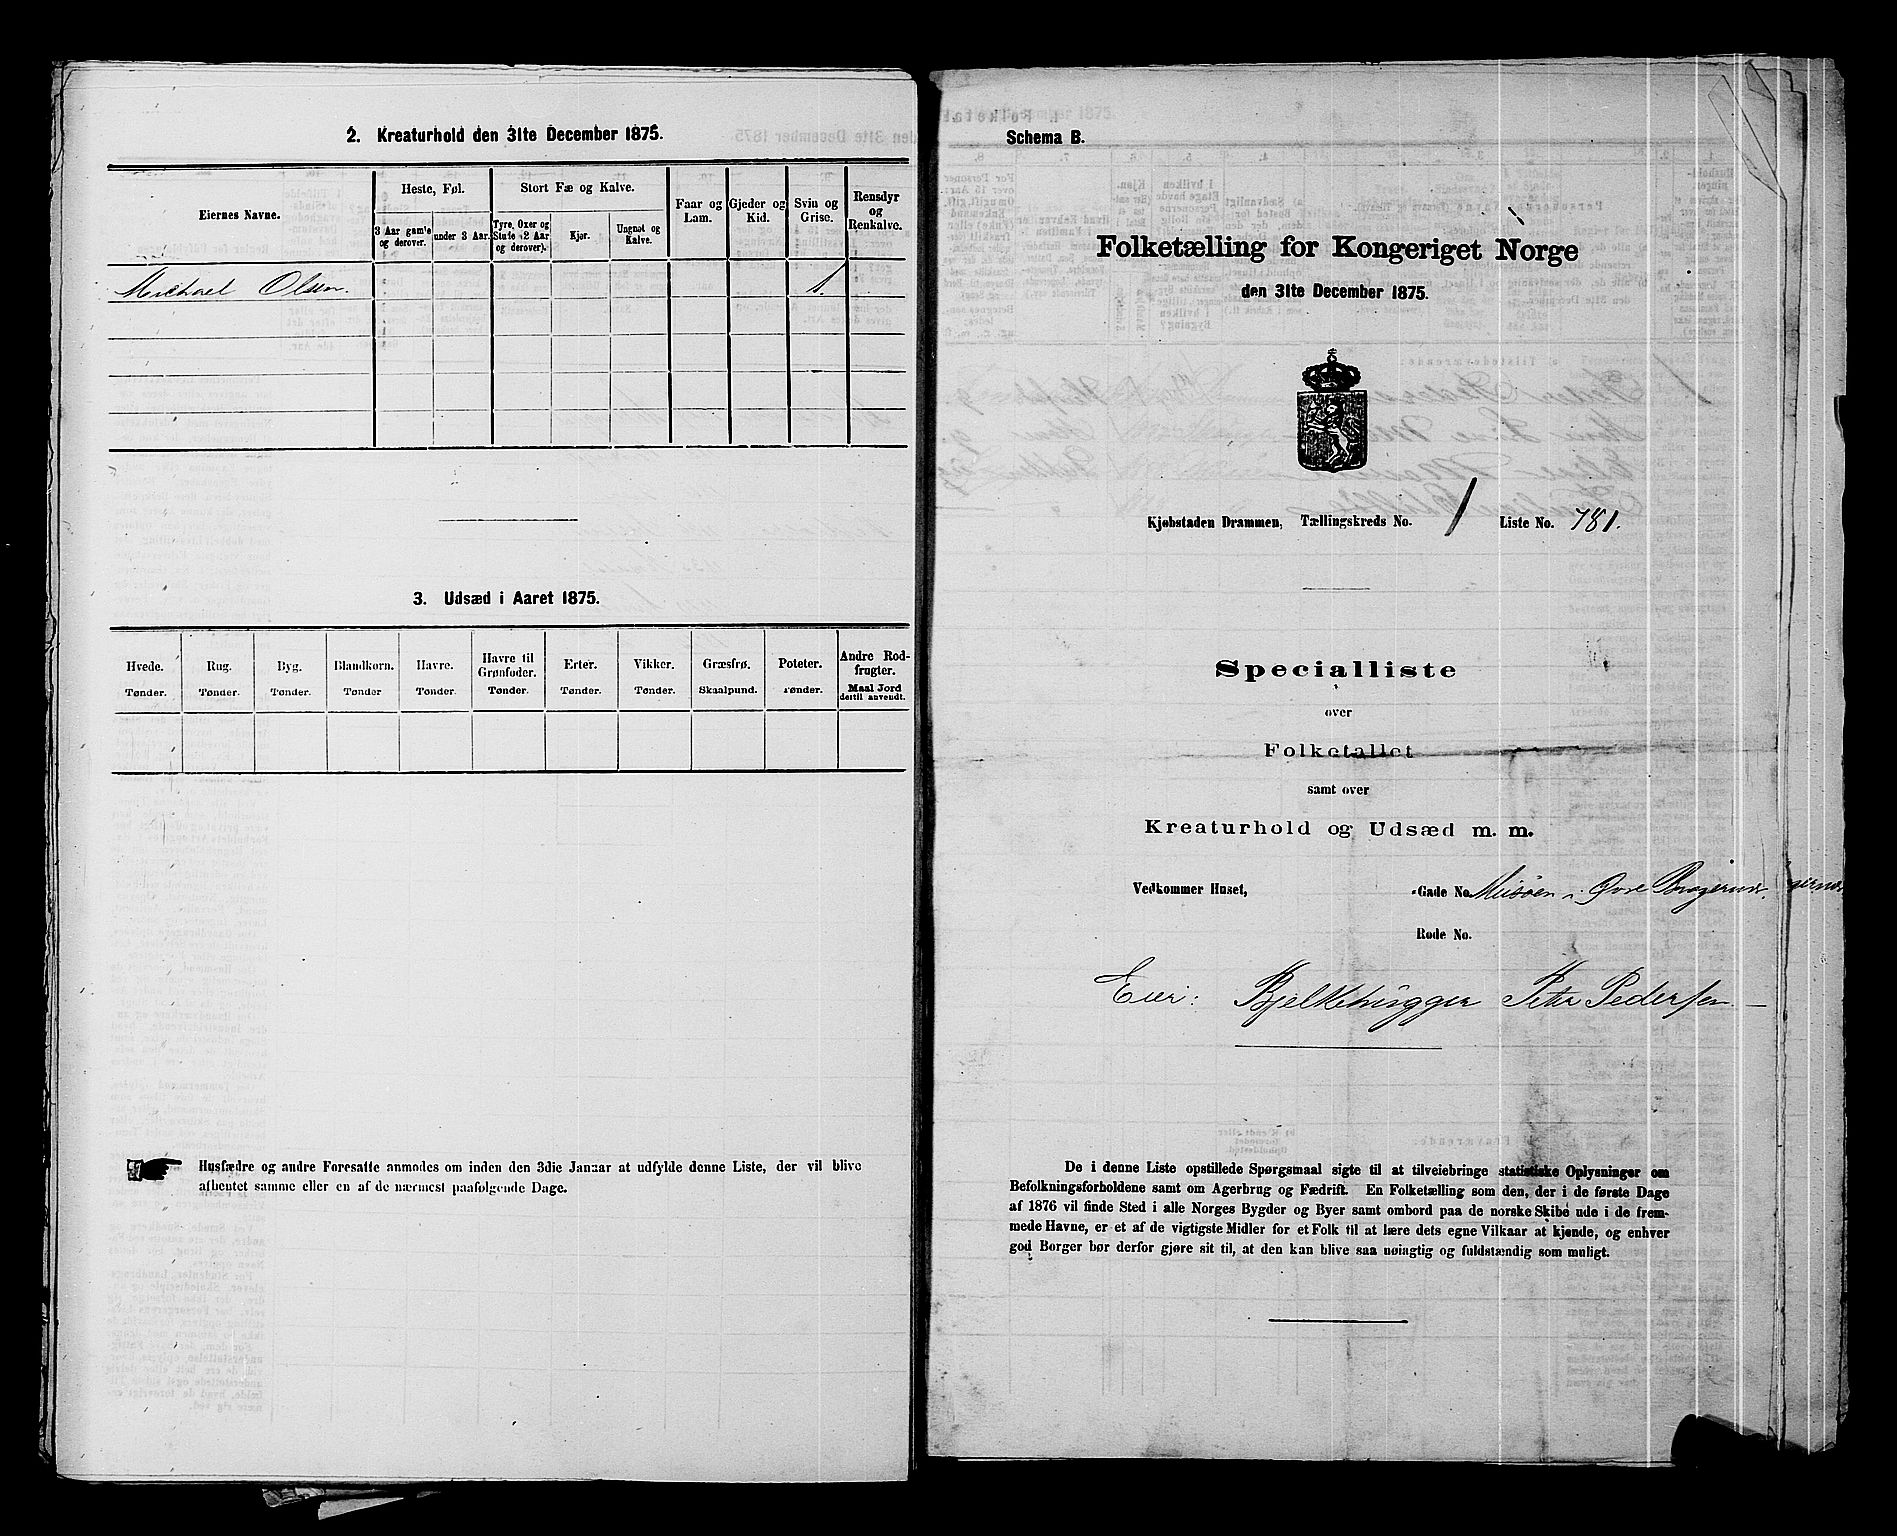 2. Kreaturhold den 31te December 1875.
Eiernes Navne.
Heste, Føl.
3 Aar gam'e og derover.
under 3 Aar.
Stort Fæ og Kalve.
Tyre, Oxer og Stute (2 Aar og derover).
Kjør.
Ungnøt og Kalve.
Faar og Lam.
Gjeder og Kid.
Svin og Grise.
Rensdyr og Renkalve.
Michael Olsen. 1.
3. Udsæd i Aaret 1875.
Hvede. Tønder.
Rug. Tønder.
Byg. Tønder.
Blandkorn. Tønder
Havre. Tønder.
Havre til Grønfoder. Tønder.
Erter. Tønder.
Vikker. Tønder.
Græsfrø. Skaalpund.
Poteter. Tønder.
Andre Rodfrugter. Maal Jord dertil anvendt.
Husfædre og andre Foresatte anmodes om inden den 3die Januar at udfylde denne Liste, der vil blive
afhentet samme eller en af de nærmest paafølgende Dage.
Schema B.
Folketælling for Kongeriget Norge
den 31te December 1875.
Kjøbstaden Drammen, Tællingskreds No. 1 Liste No. 781.
Specialliste
over
Folketallet
samt over
Kreaturhold og Udsæd m. m.
Vedkommer Huset, -Gade No. Øvre
Rode No.
Eier: Bjelkehugger Peter Pedersen
De i denne Liste opstillede Spørgsmaal sigte til at tilveiebringe statistiske Oplysninger om
Befolkningsforholdene samt om Agerbrug og Fædrift. En Folketælling som den, der i de første Dage
af 1876 vil finde Sted i alle Norges Bygder og Byer samt ombord paa de norske Skibe ude i de frem-
mede Havne, er et af de vigtigste Midler for et Folk til at lære dets egne Vilkaar at kjende, og enhver
god Borger bør derfor gjøre sit til, at den kan blive saa nøiagtig og fuldstændig som muligt.